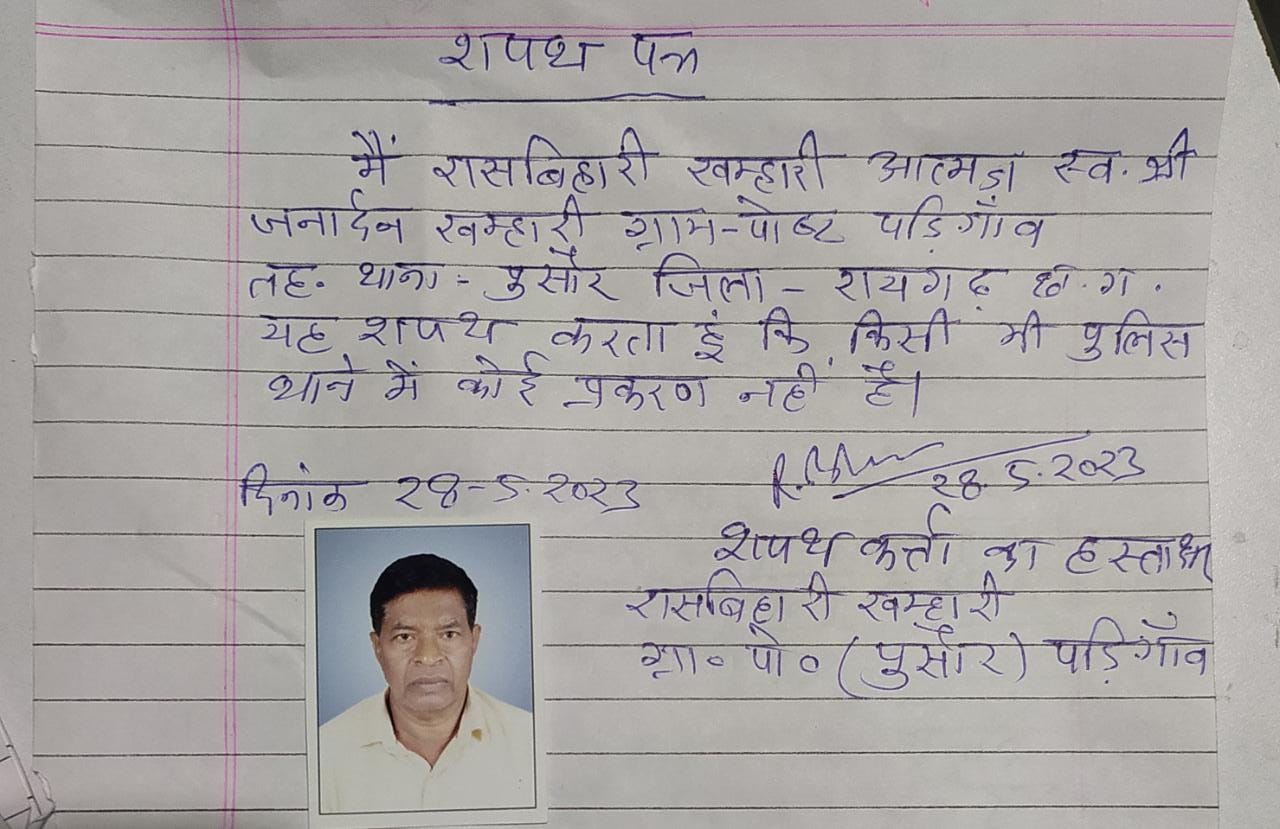 शपथ पत्र
मैं रासबिहारी खम्हारी आत्मज स्व. श्री
जनार्दन खम्हारी ग्राम-पोष्ट पड़िगाँव
तह. थाना - पुसौर जिला - रायगढ़ छ.ग.
यह शपथ करता हुं कि किसी भी पुलिस
थाने में कोई प्रकरण नहीं है।
दिनांक 28-5-2023
28.5.2023
शपथ कर्त्ता का हस्ताक्षर
रासबिहारी खम्हारी
ग्रा० पो० (पुसौर) पड़िगाँव